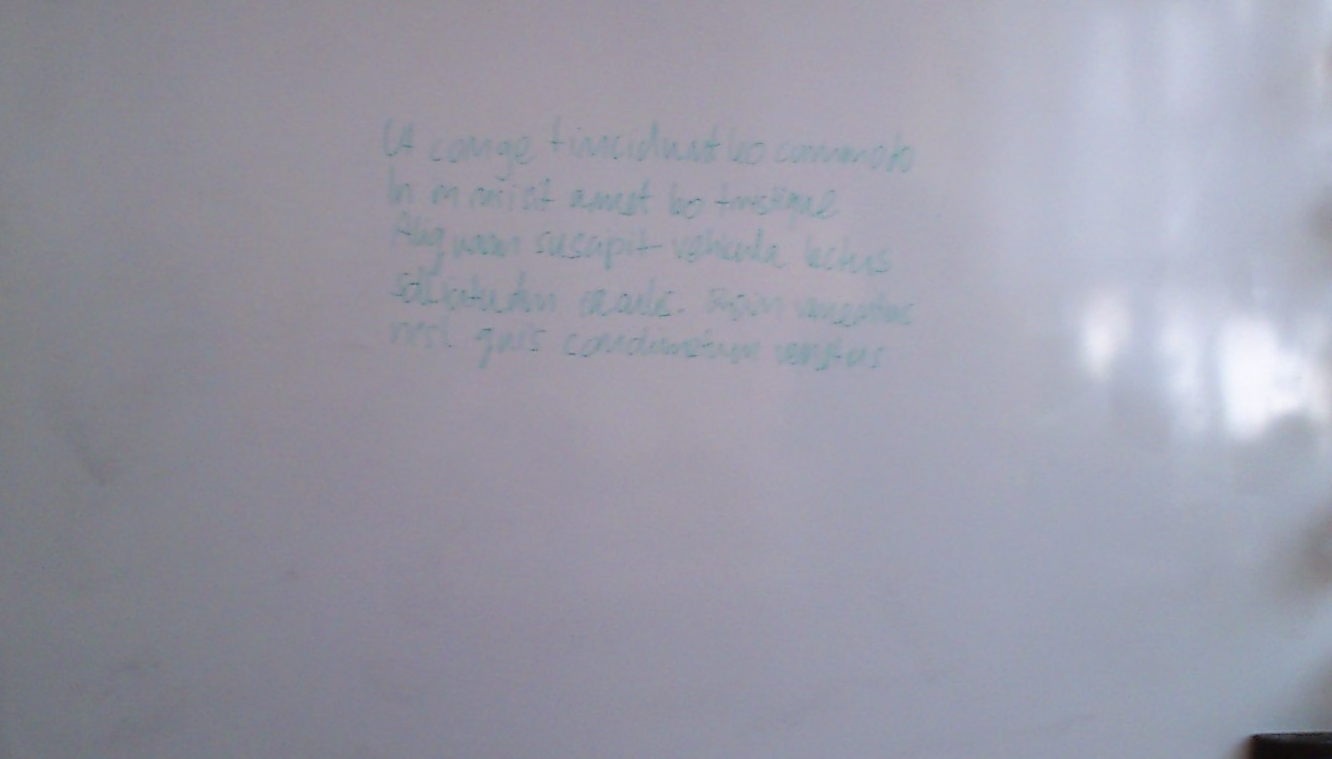 Ut conge tincidunt leo commodo
In in nisi sit amet leo tristique
Aliquam suscipit vehicula lectus
sollicitudin iaculis. Proin venenatis
nisl quis condimetum